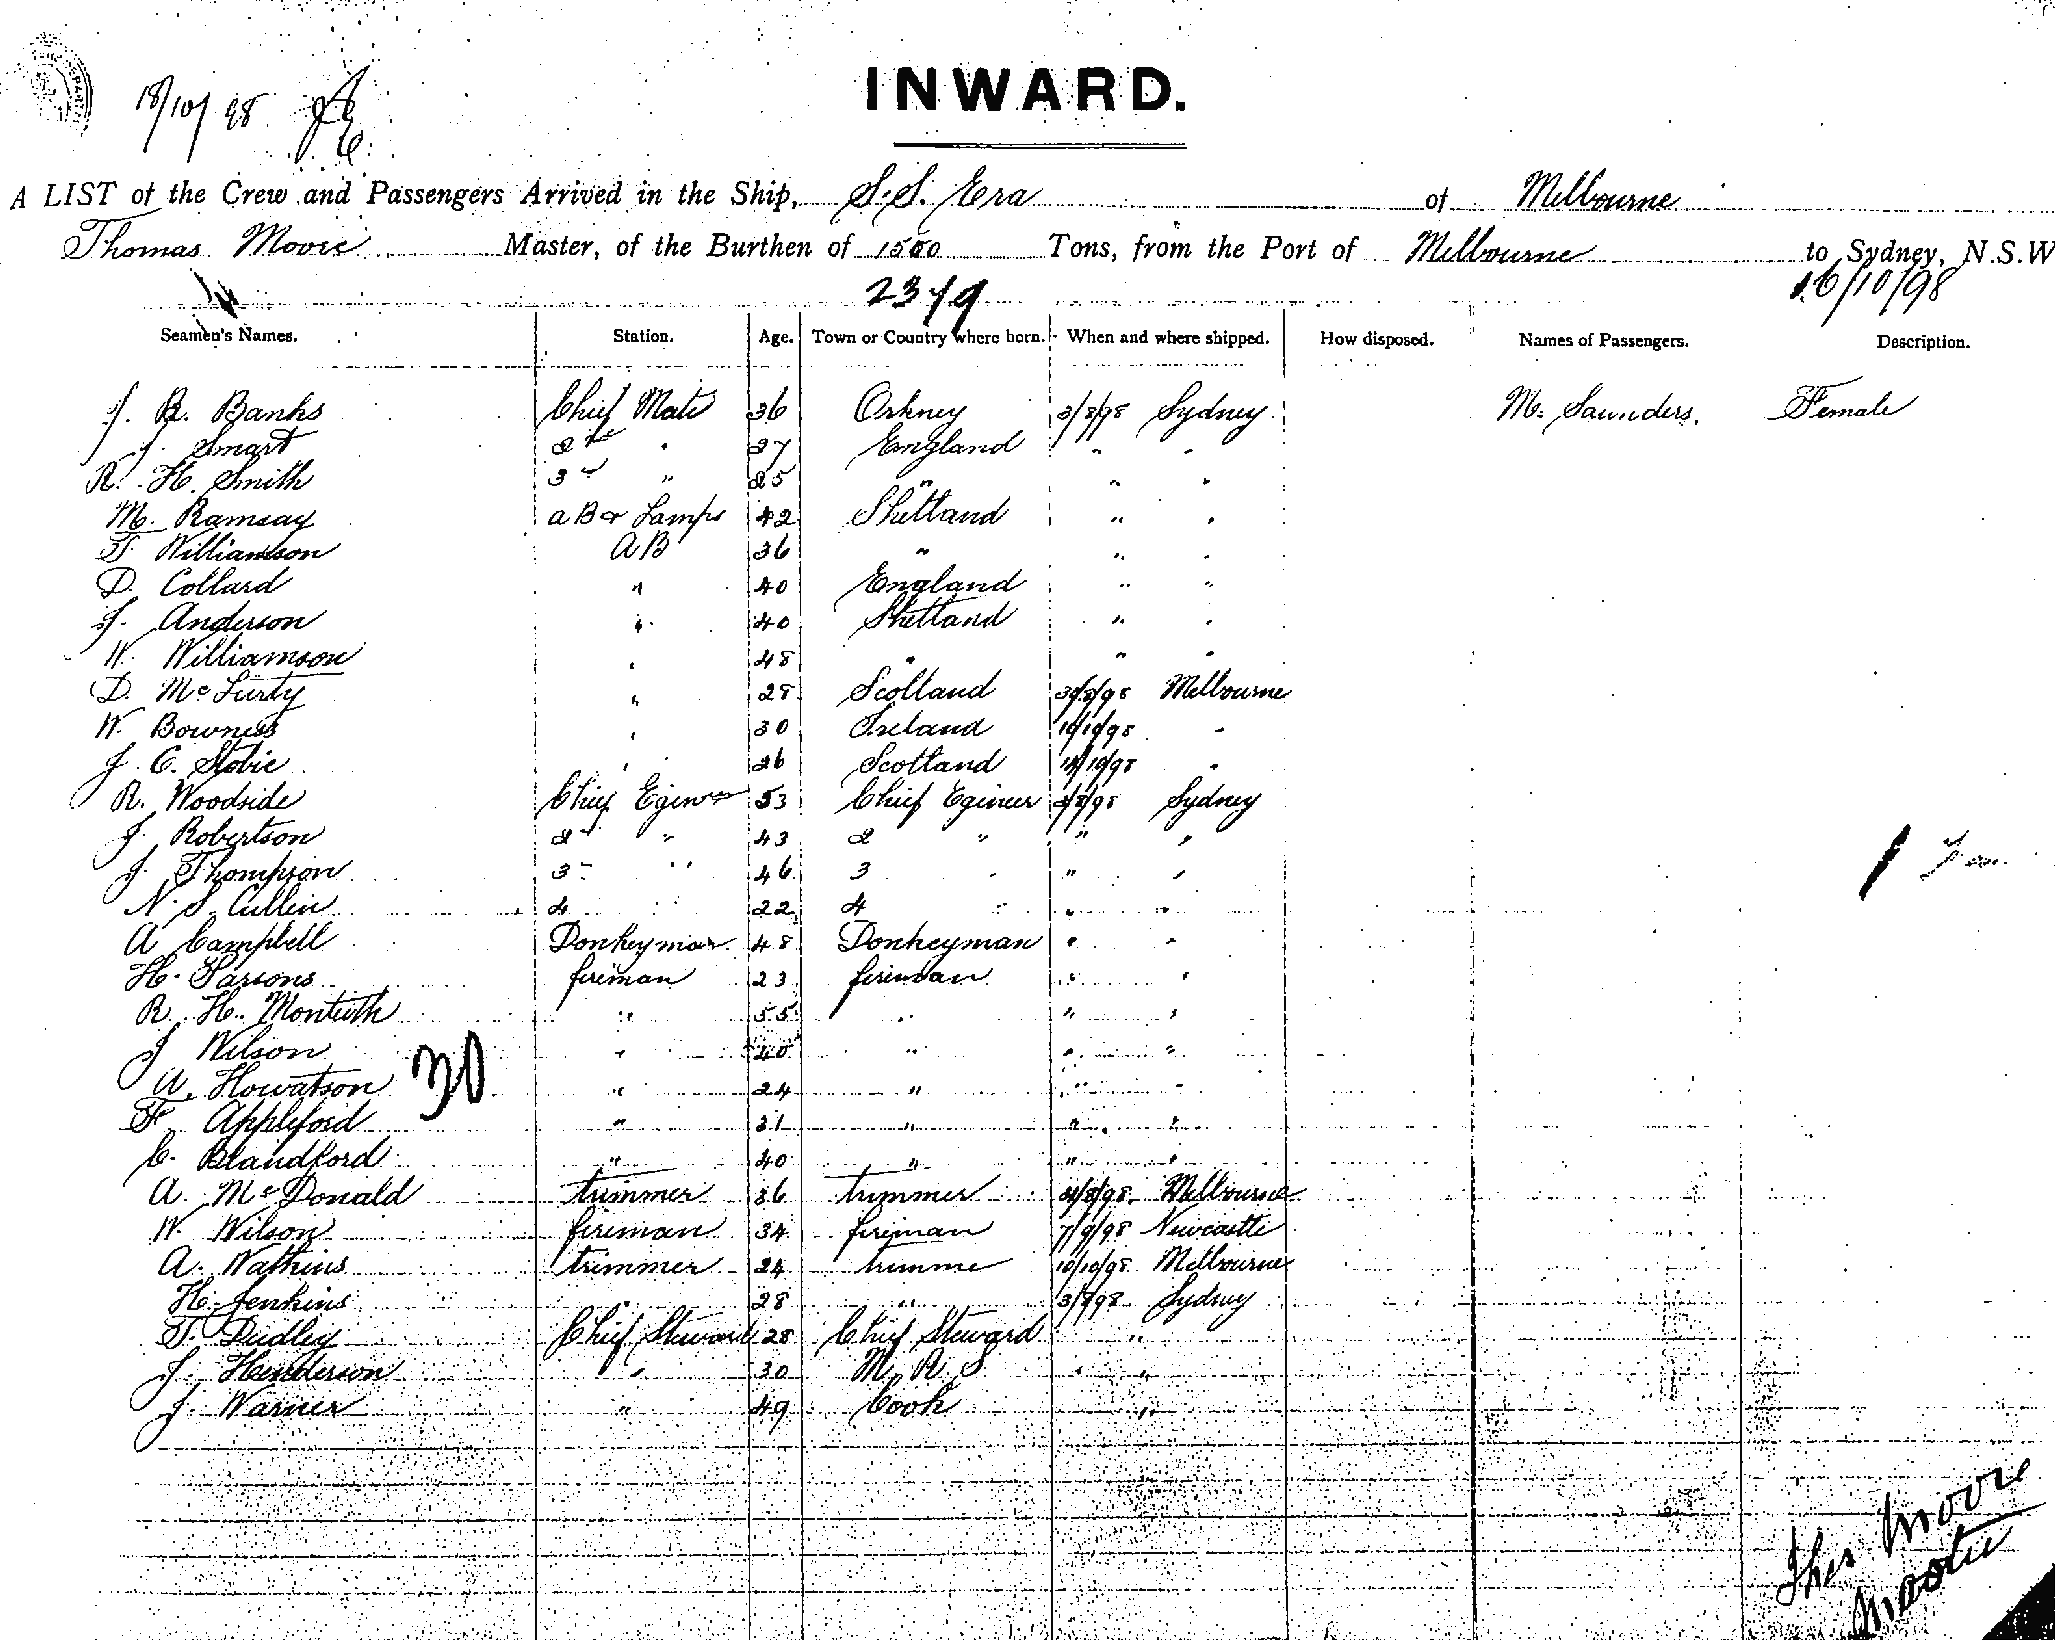 18/10/98
INWARD.
A LIST of the Crew and Passengers Arrived in the Ship, S.S. Era of Melbourne
Thomas Moore Master, of the Burthen of 1500 Tons, from the Port of Melbourne to Sydney, N.S.W
16/10/98
Seamen's Names. Station. Age. Town or Country where born. When and where shipped. How disposed. Names of Passengers. Description.
J. R. Banks Chief Mate 36 Orkney 3/8/98 Sydney M. Saunders. Female
J. Smart 2nd " 27 England " "
R. H. Smith 3rd " 25 " " "
M. Ramsay AB & Lamps 42 Shetland " "
T. Williamson AB 36 " " "
D. Collard " 40 England " "
J. Anderson " 40 Shetland " "
W. Williamson " 48 " " "
D. Mc Lurty " 28 Scotland Melbourne
W. Bowness " 30 Ireland 10/10/98 "
J. C. Stobie " 26 Scotland "
R. Woodside Chief Eginer 53 Chief Egineer Sydney
J. Robertson 2 " 43 2 " " "
J. Thompson 3 " 46 3 " " "
N. S. Cullen 4 " 22 4 " " "
A Campbell Donkeyman 48 Donkeyman " "
H. Parsons fireman 23 fireman " "
R. H. Montieth " 55 " " "
J Wilson " 40 " " "
30
A. Howatson " 24 " " "
F. Appleford " 31 " " "
C. Blandford " 40 " " "
A. Mc Donald trimmer 36 trimmer Melbourne
W. Wilson fireman 34 fireman 7/9/98 Newcastle
A. Watkins trimmer 24 trimme 10/10/98 Melbourne
H. Jenkins " 28 " 3/8/98 Sydney
T. Dudley Chief Steward 28 Chief Steward "
J. Henderson " 30 M. R. S. " "
J. Warner " 49 Cook "
Thos Moore
Master